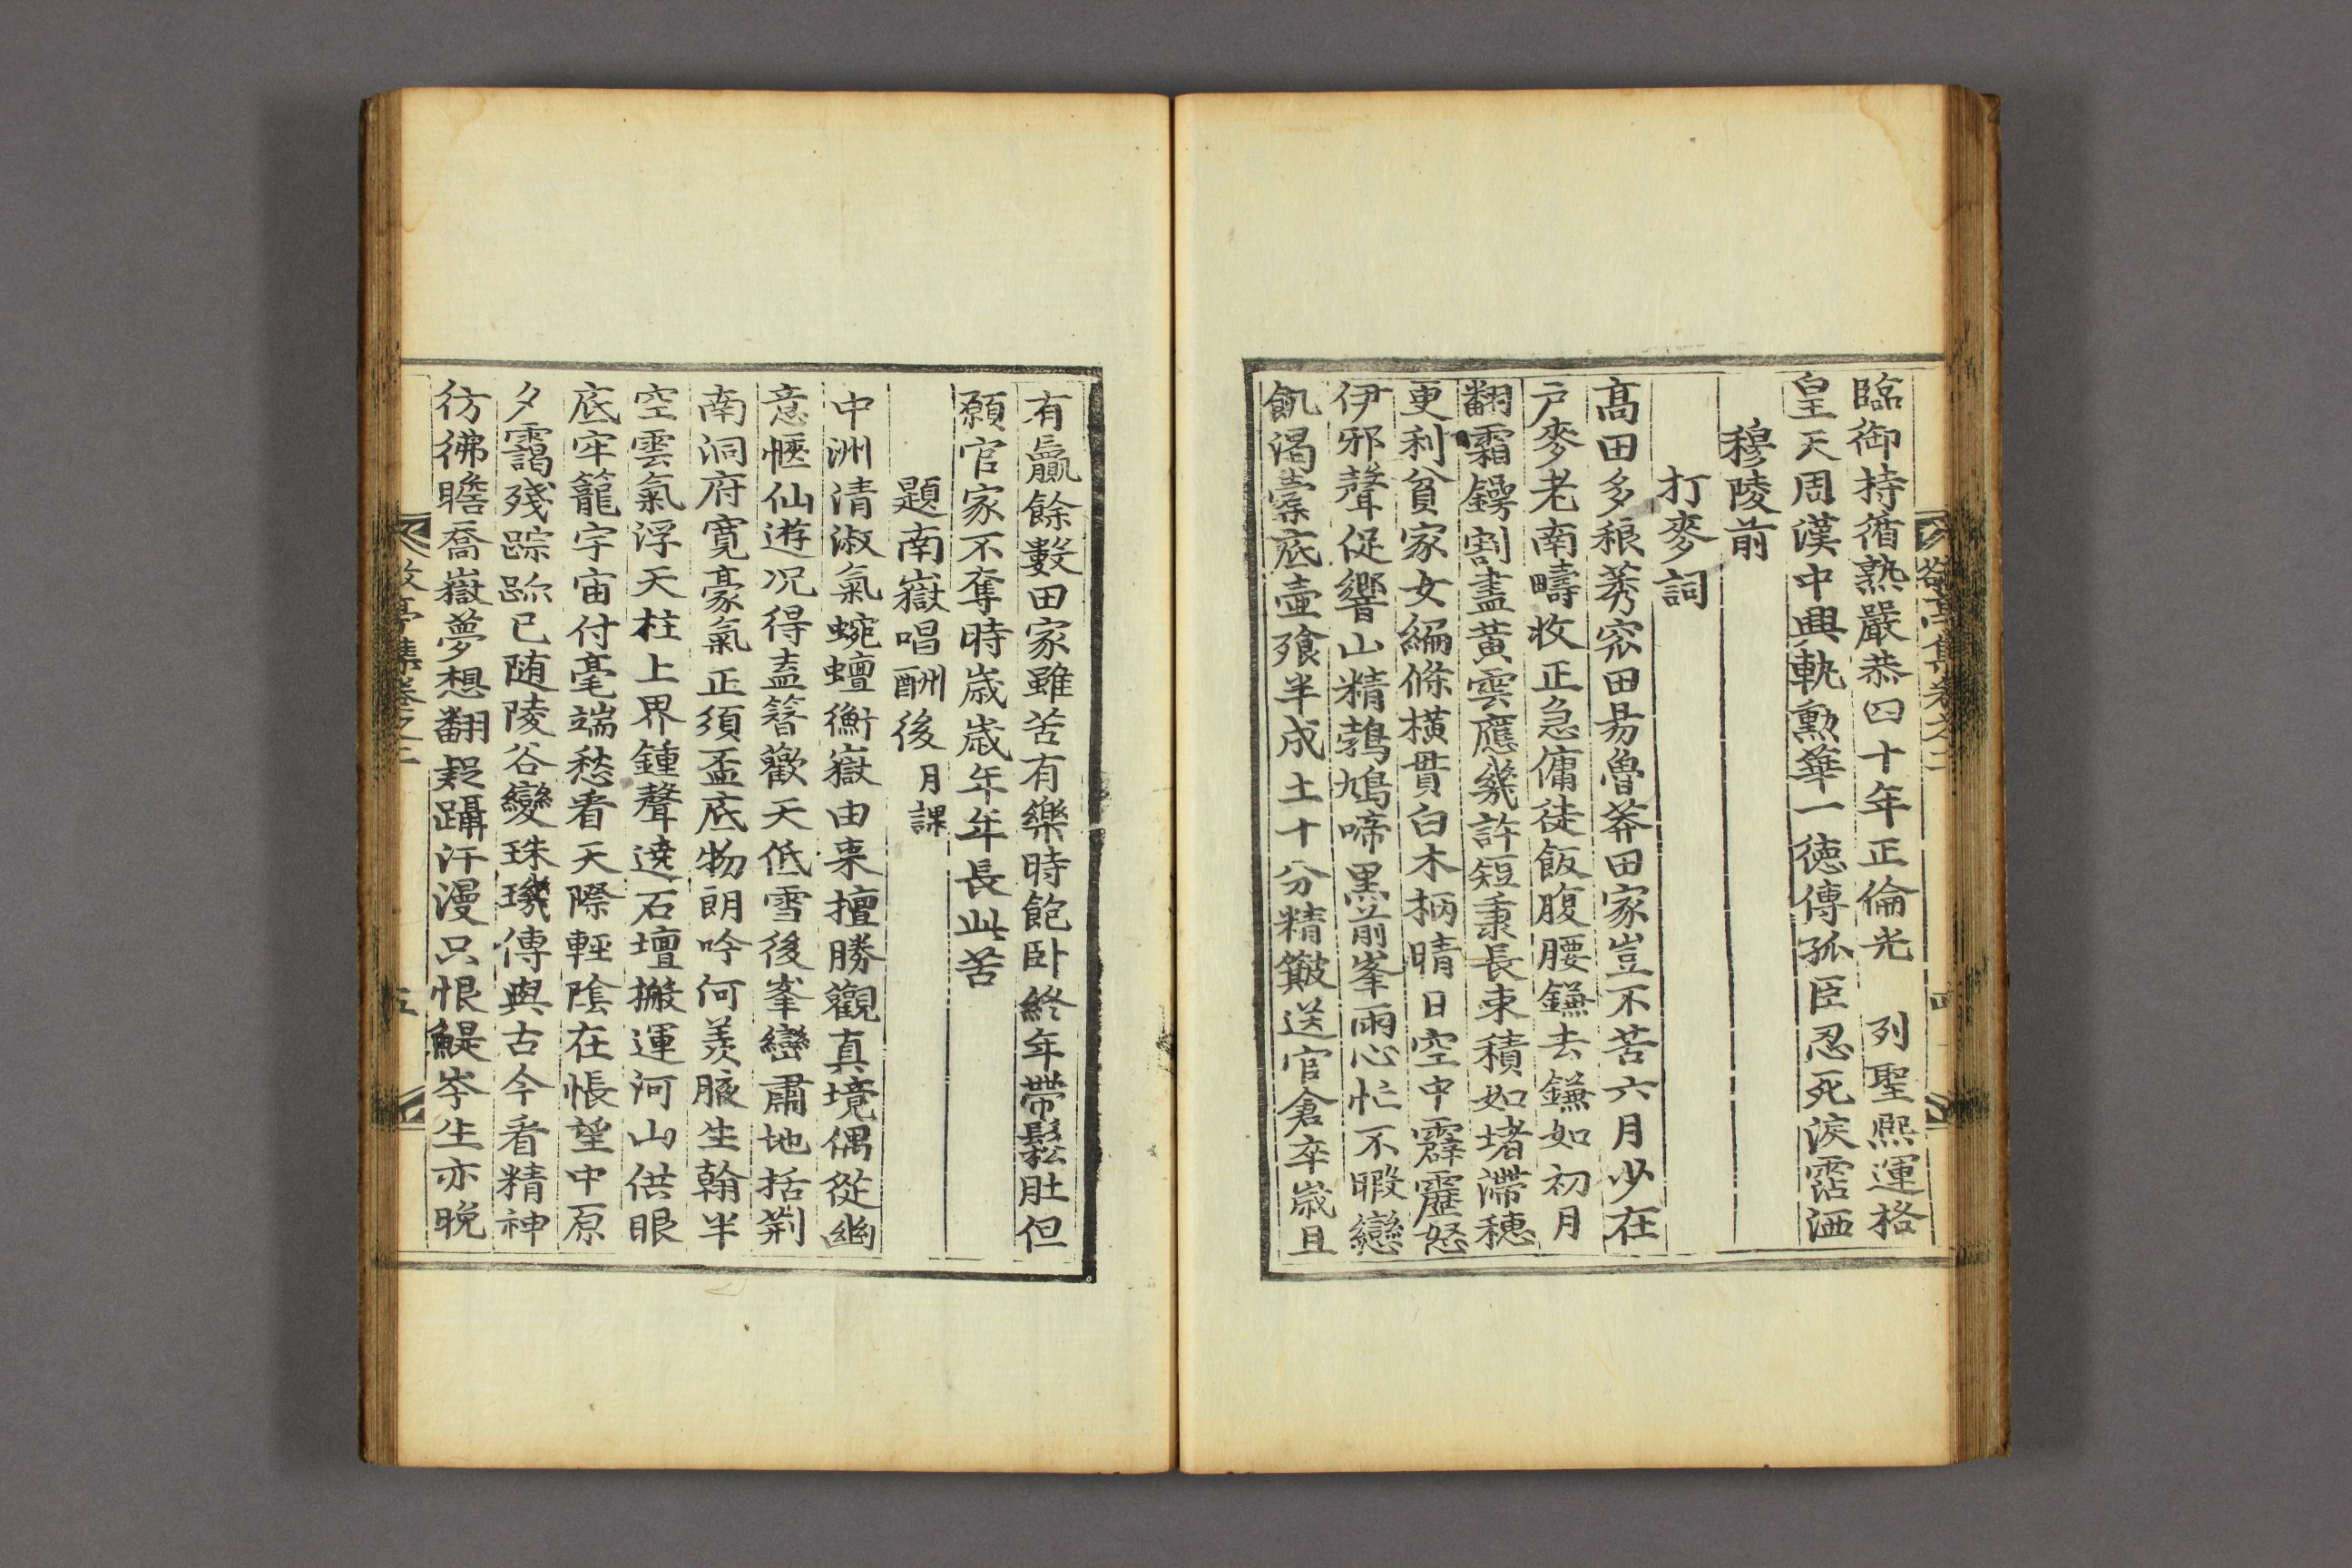 臨御持循熟嚴恭四十年正倫光 列聖熙運格
皇天周漢中興軌勳華一德傳孤臣忍死淚霑洒
穆陵前
打麥詞
高田多稂莠窊田易魯莽田家豈不苦六月少在
戶麥老南疇收正急傭徒飯腹腰鎌去鎌如初月
翻霜鍔割盡黃雲應幾許短秉長束積如堵滯穗
更利貧家女編條橫貫白木柄晴日空中霹靂怒
伊邪聲促響山精鵓鳩啼黑前峯雨心忙不暇戀
飢渴橐底壺飱半成土十分精簸送官倉卒歲且
有贏餘數田家雖苦有樂時飽卧終年帶鬆肚但
願官家不奪時歲歲年年長此苦
題南嶽唱酬後 月課
中洲清淑氣蜿蟺衡嶽由來擅勝觀真境偶從幽
意愜仙遊况得盍簪歡天低雪後峯巒肅地括荆
南洞府寬豪氣正須盃底物朗吟何羨腋生翰半
空雲氣浮天柱上界鍾聲遶石壇搬運河山供眼
底牢籠宇宙付毫端愁看天際輕陰在悵望中原
夕靄殘踪跡已随陵谷變珠璣傳與古今看精神
彷彿瞻喬嶽夢想翻疑躡汗漫只恨鯷岑生亦晚
亭集卷之二
五